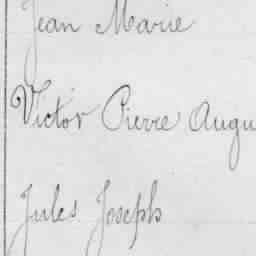 Jean Marie
Victor Pierre Augu
Jules Joseph